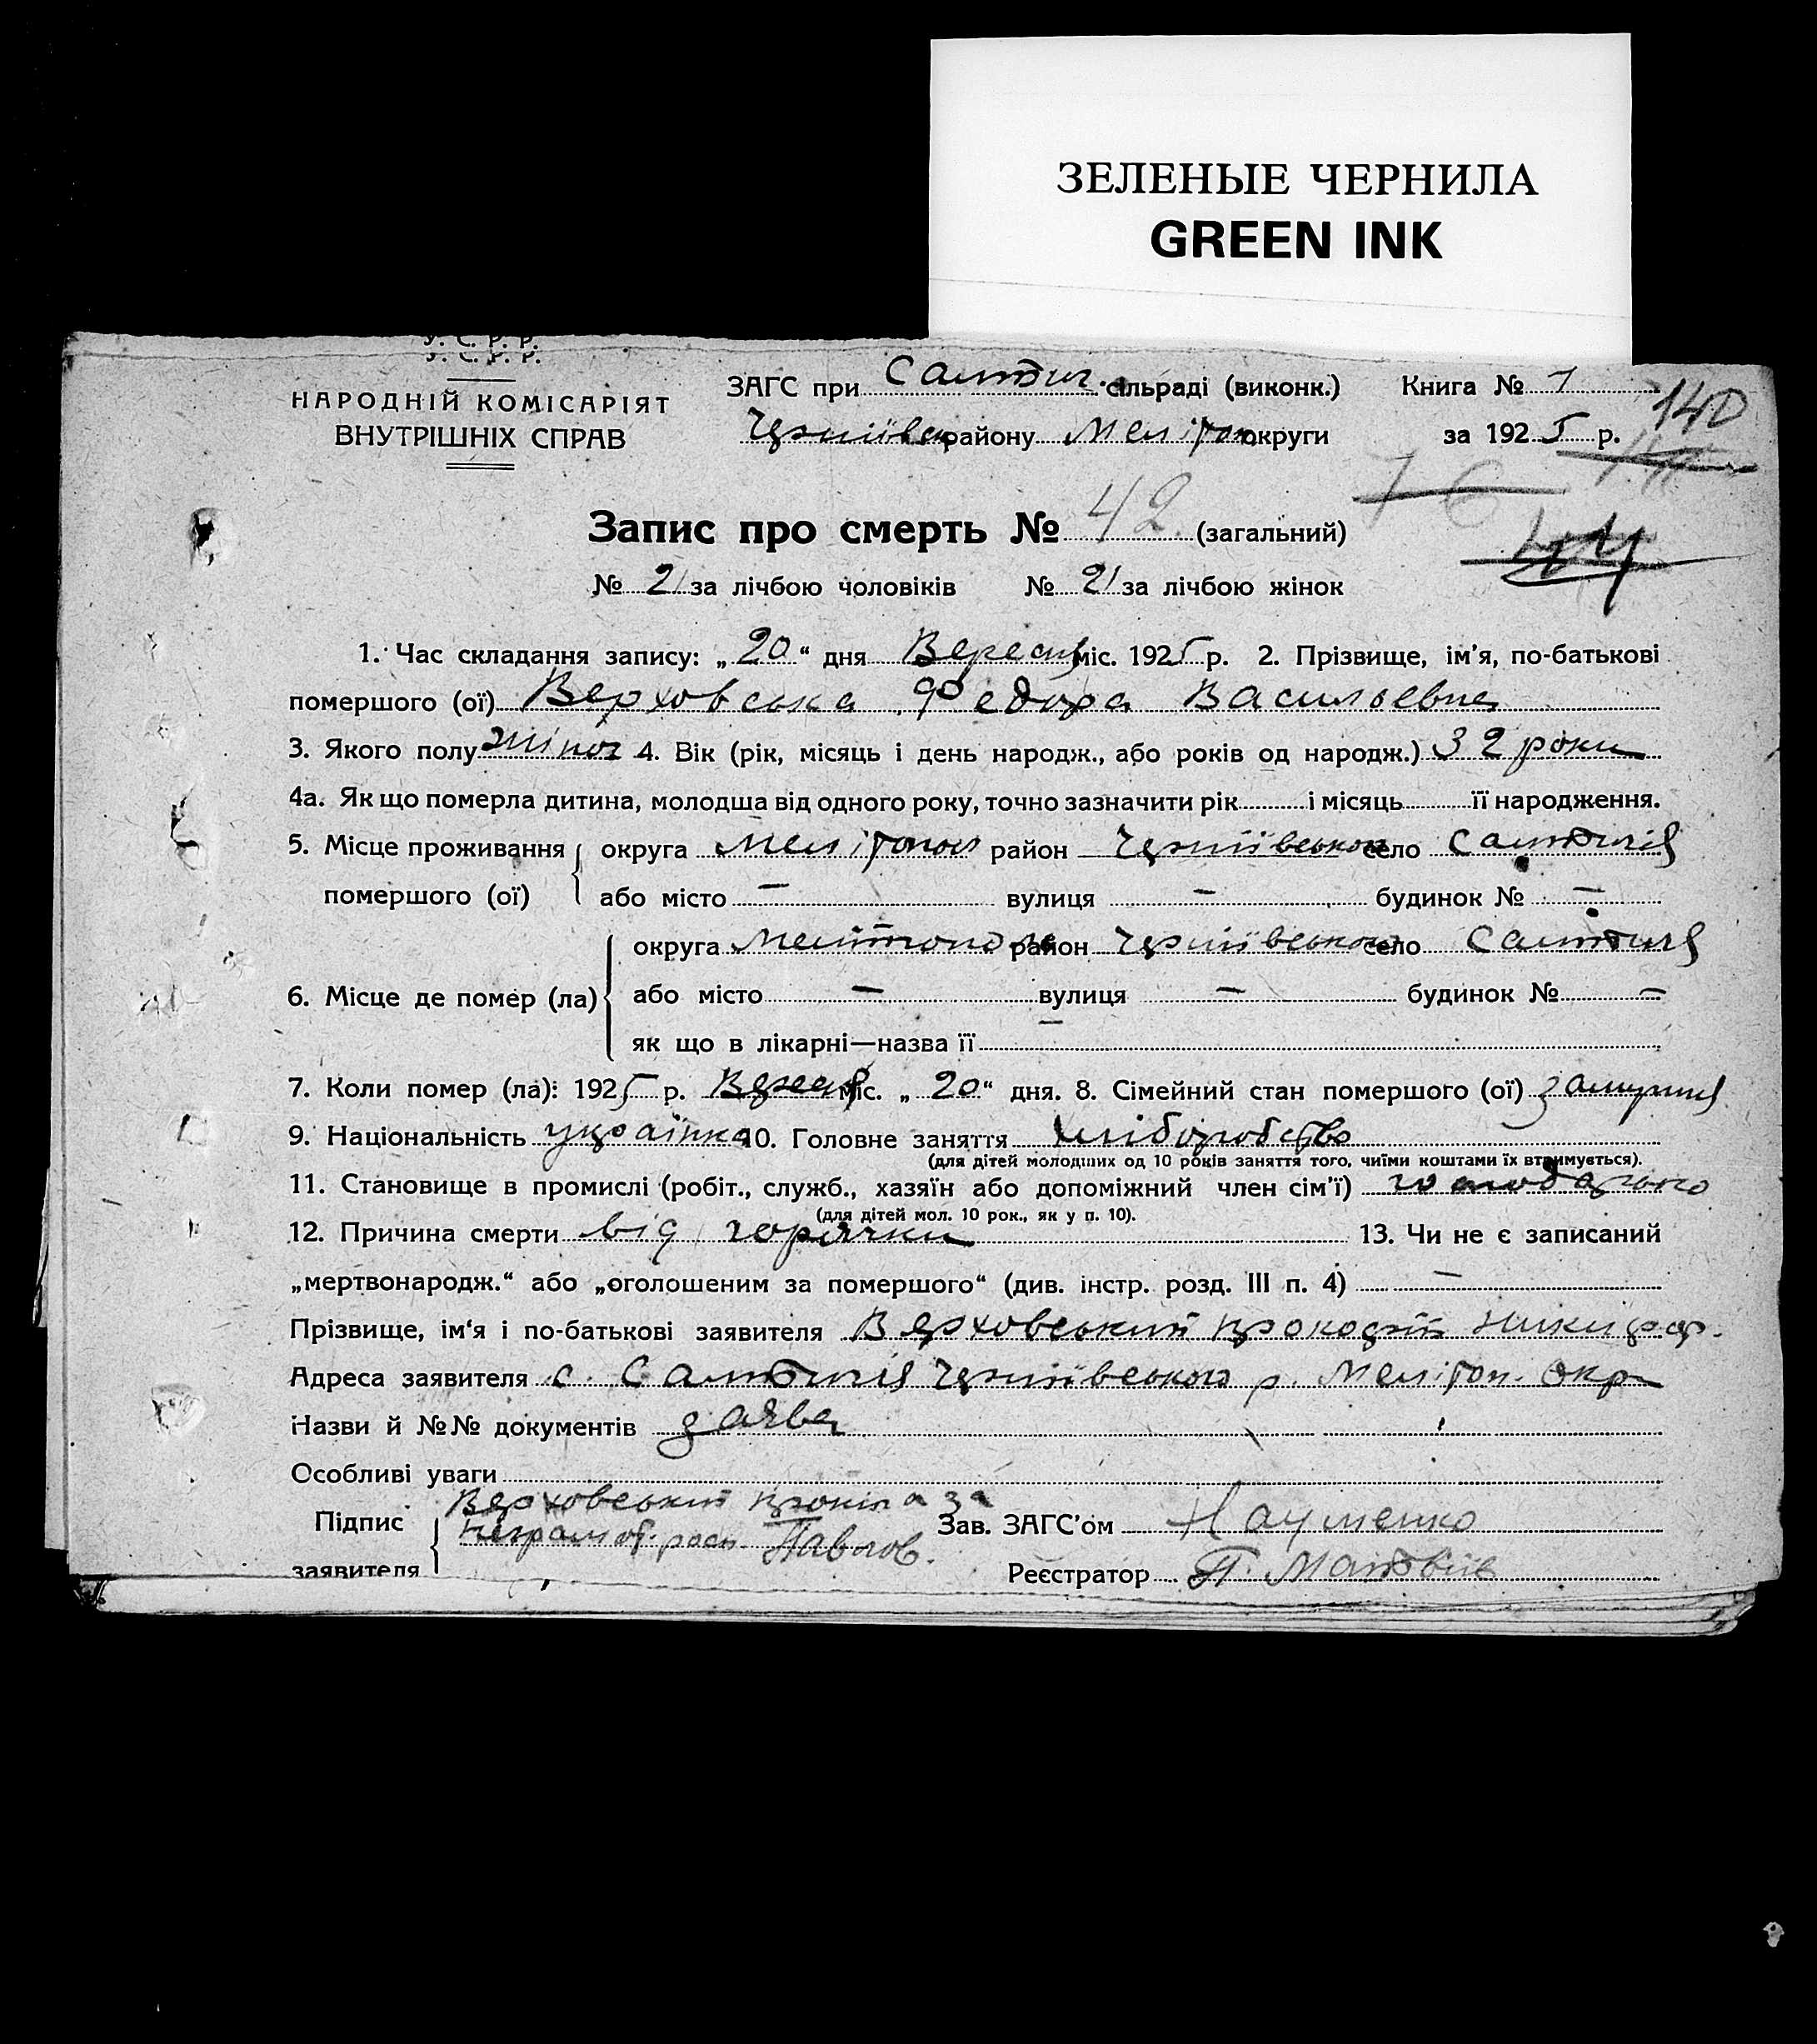 ЗЕЛЕНЫЕ ЧЕРНИЛА
GREEN INK
У. С. Р. Р.
У. С. Р. Р.
НАРОДНІЙ КОМІСАРІЯТ
ВНУТРІШНІХ СПРАВ
ЗАГС при Салтич. сільраді (виконк.) Книга № 1
140
Черніївськ району Мелітоп. округи за 1925 р.
76
Запис про смерть № 42 (загальний)
№ 21 за лічбою чоловіків № 21 за лічбою жінок
1. Час складання запису: „20“ дня Вересня міс. 1925 р. 2. Прізвище, ім'я, по-батькові
помершого (ої) Верховська Федора Васильевна
3. Якого полу жіноч 4. Вік (рік, місяць і день народж., або років од народж.) 32 роки
4а. Як що померла дитина, молодша від одного року, точно зазначити рік і місяць її народження.
5. Місце проживання помершого (ої) округа Мелітополь район Черніївського село Салтичія
або місто — вулиця — будинок № —
6. Місце де помер (ла) округа Мелітополь район Черніївського село Салтичія
або місто — вулиця — будинок № —
як що в лікарні—назва її —
7. Коли помер (ла): 1925 р. Вересня міс. „20“ дня. 8. Сімейний стан помершого (ої) замужня
9. Національність українка 10. Головне заняття хліборобство
(для дітей молодших од 10 років заняття того, чиїми коштами їх втримується).
11. Становище в промислі (робіт., служб., хазяїн або допоміжний член сім'ї)
(для дітей мол. 10 рок., як у п. 10).
12. Причина смерти від горячки 13. Чи не є записаний
„мертвонародж.“ або „оголошеним за помершого“ (див. інстр. розд. III п. 4) —
Прізвище, ім'я і по-батькові заявителя Верховський Прокофій Никифор.
Адреса заявителя с. Салтичія Черніївського р. Мелітоп. окр
Назви й №№ документів заява
Особливі уваги
Підпис заявителя Верховський за
неграмот. росп. Павлов.
Зав. ЗАГС'ом Науменко
Реєстратор П. Матвіїв